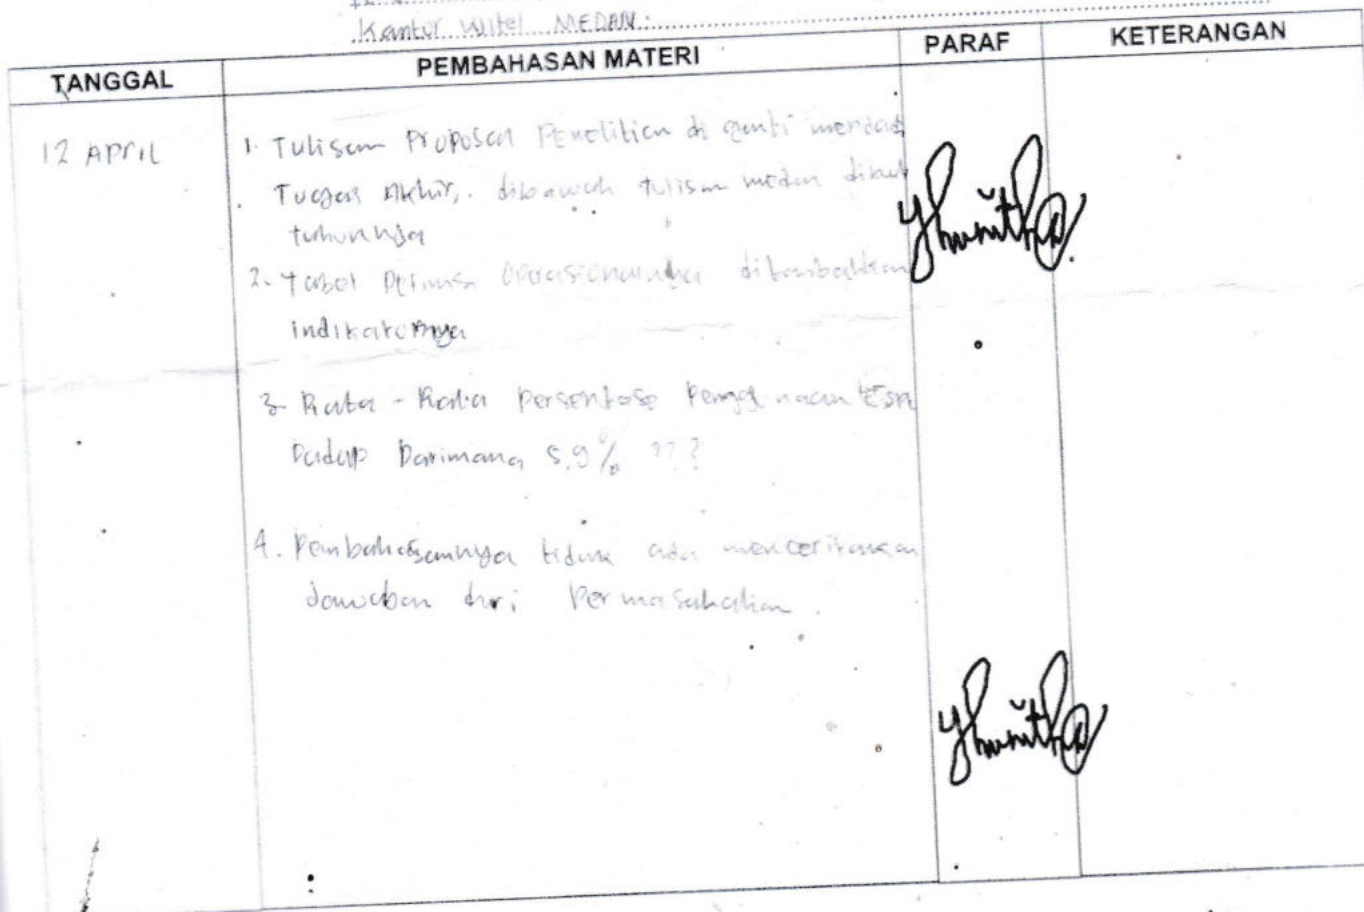 Kantor Witel MEDAN
TANGGAL PEMBAHASAN MATERI PARAF KETERANGAN
12 APRIL 1. Tulisan Proposal Penelitian di ganti menjadi
Tugas Akhir, dibawah tulisan medan dibuat
tahunnya
2. Tabel operasionalnya ditambahkan
indikatornya
3. Rata - Rata Persentase Penggunaan
Darimana 5.9% ???
4. Pembahasannya tidak ada menceritakan
Jawaban dari Permasalahan.